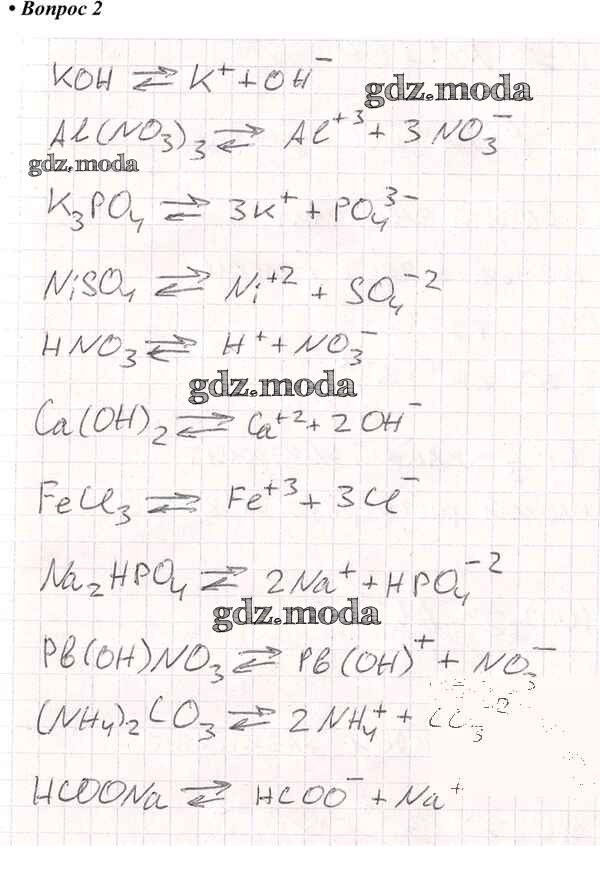 • Вопрос 2
KOH ⇌ K⁺ + OH⁻
gdz.moda
Al(NO₃)₃ ⇌ Al⁺³ + 3NO₃⁻
gdz.moda
K₃PO₄ ⇌ 3K⁺ + PO₄³⁻
NiSO₄ ⇌ Ni⁺² + SO₄⁻²
HNO₃ ⇌ H⁺ + NO₃⁻
gdz.moda
Ca(OH)₂ ⇌ Ca⁺² + 2OH⁻
FeCl₃ ⇌ Fe⁺³ + 3Cl⁻
Na₂HPO₄ ⇌ 2Na⁺ + HPO₄⁻²
gdz.moda
PB(OH)NO₃ ⇌ PB(OH)⁺ + NO₃⁻
(NH₄)₂CO₃ ⇌ 2NH₄⁺ + CO₃⁻²
HCOONa ⇌ HCOO⁻ + Na⁺